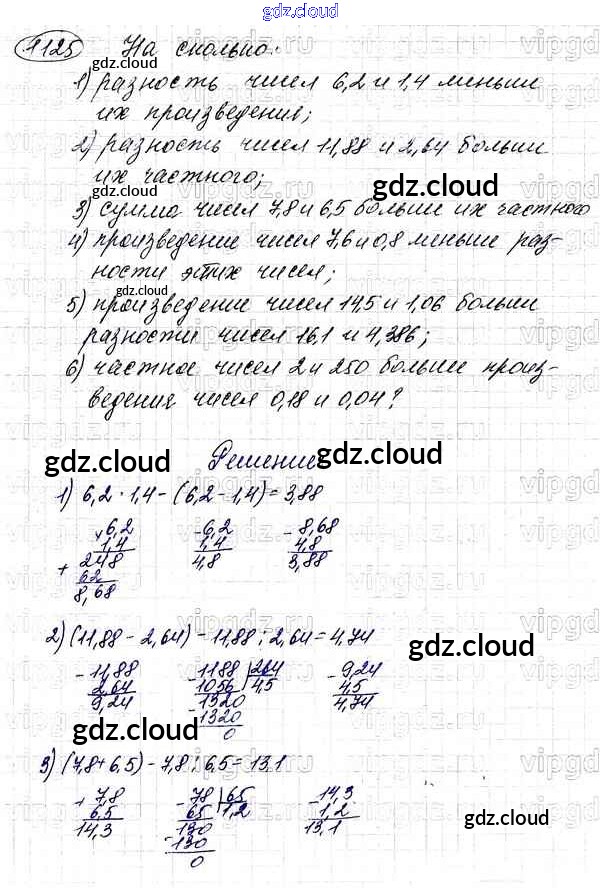 gdz.cloud
1125 На сколько:
gdz.cloud
1) разность чисел 6,2 и 1,4 меньше
их произведения;
2) разность чисел 11,88 и 2,64 больше
их частного;
gdz.cloud
3) сумма чисел 7,8 и 6,5 больше их частного
4) произведение чисел 7,6 и 0,8 меньше раз-
ности этих чисел;
gdz.cloud
5) произведение чисел 14,5 и 1,06 больше
разности чисел 16,1 и 4,386;
6) частное чисел 2 и 250 больше произ-
ведения чисел 0,18 и 0,04?
Решение
gdz.cloud gdz.cloud
1) 6,2 · 1,4 - (6,2 - 1,4) = 3,88
× 6,2 - 6,2 - 8,68
1,4 1,4 4,8
+ 248 4,8 3,88
62
8,68
2) (11,88 - 2,64) - 11,88 : 2,64 = 4,74
gdz.cloud
- 11,88 - 1188 | 264 - 9,24
2,64 1056 4,5 4,5
9,24 - 1320 4,74
1320
0
gdz.cloud
3) (7,8 + 6,5) - 7,8 : 6,5 = 13,1
+ 7,8 - 78 | 65 - 14,3
6,5 65 1,2 1,2
14,3 - 130 13,1
130
0
gdz.cloud gdz.cloud